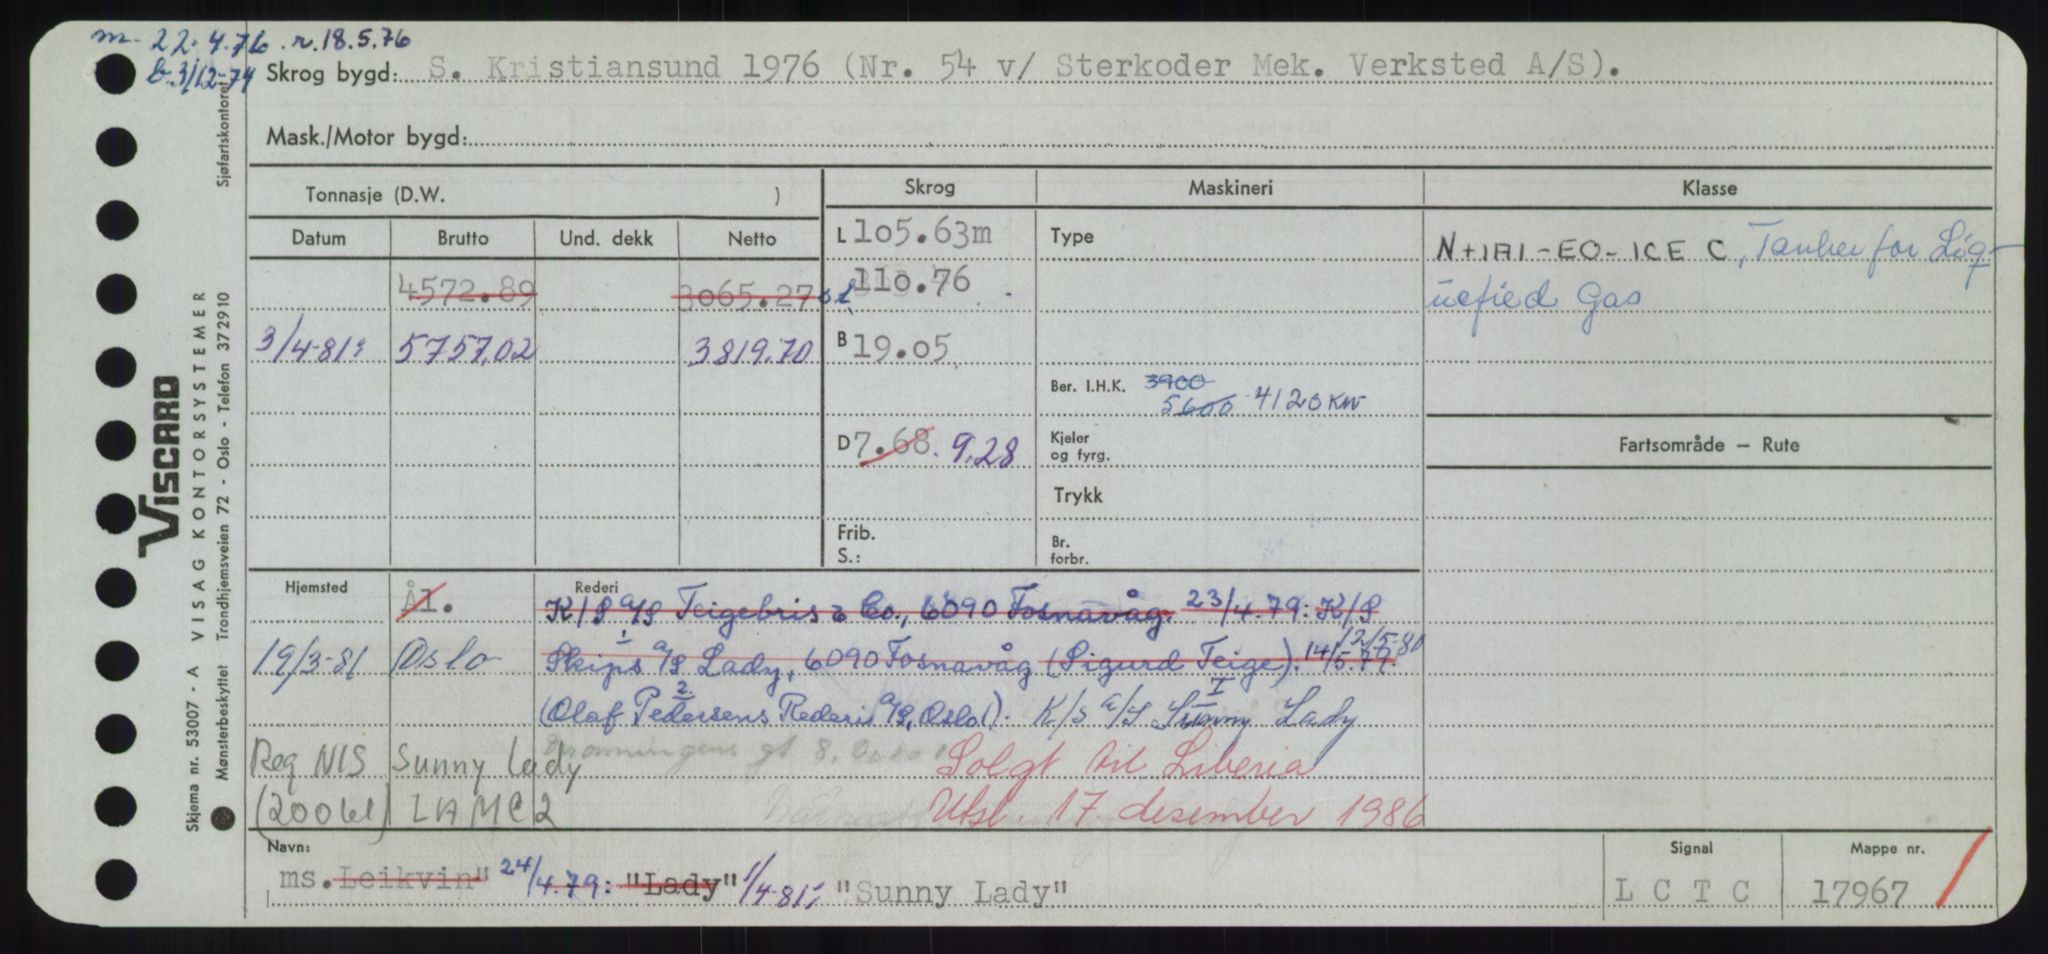 m. 22.4.76. r. 18.5.76
b. 3/12-74 Skrog bygd: S. Kristiansund 1976 (Nr. 54 v/ Sterkoder Mek. Verksted A/S).
Mask./Motor bygd:
Tonnasje (D.W. ) Skrog Maskineri Klasse
Datum Brutto Und. dekk Netto L 105.63m Type N+1A1-EO-ICE C, Tanker for Liq-
4572.89 3065.27 110.76 uefied Gas
3/4-81: 5757,02 3819,70 B 19.05
Ber. I.H.K. 3900
5600 4120 KW
D 7.68. 9,28 Kjeler og fyrg. Fartsområde — Rute
Trykk
Frib. S.: Br. forbr.
Hjemsted Ål. Rederi K/S A/S Teigebris & Co., 6090 Fosnavåg. 23/4.79: K/S
19/3-81 Oslo Skips A/S Lady, 6090 Fosnavåg (Sigurd Teige). 14/5.79. 12/5-80
(Olaf Pedersens Rederi A/S, Oslo). K/S A/S Sunny Lady I
Reg NIS Sunny Lady Solgt til Liberia
(20061) LAMC2 Utsl. 17. desember 1986
Navn: Signal Mappe nr.
ms. Leikvin" 24/4.79: "Lady" 1/4-81: "Sunny Lady" L C T C 17967
VISCARD
Skjema nr. 53007 - A VISAG KONTORSYSTEMER
Mønsterbeskyttet Trondhjemsveien 72 - Oslo - Telefon 372910
Sjøfartskontoret